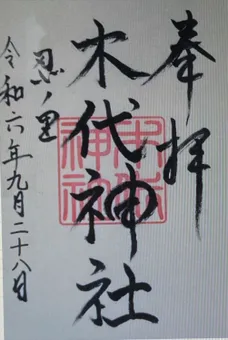 奉拝
木代神社
忍ノ里
令和六年九月二十八日